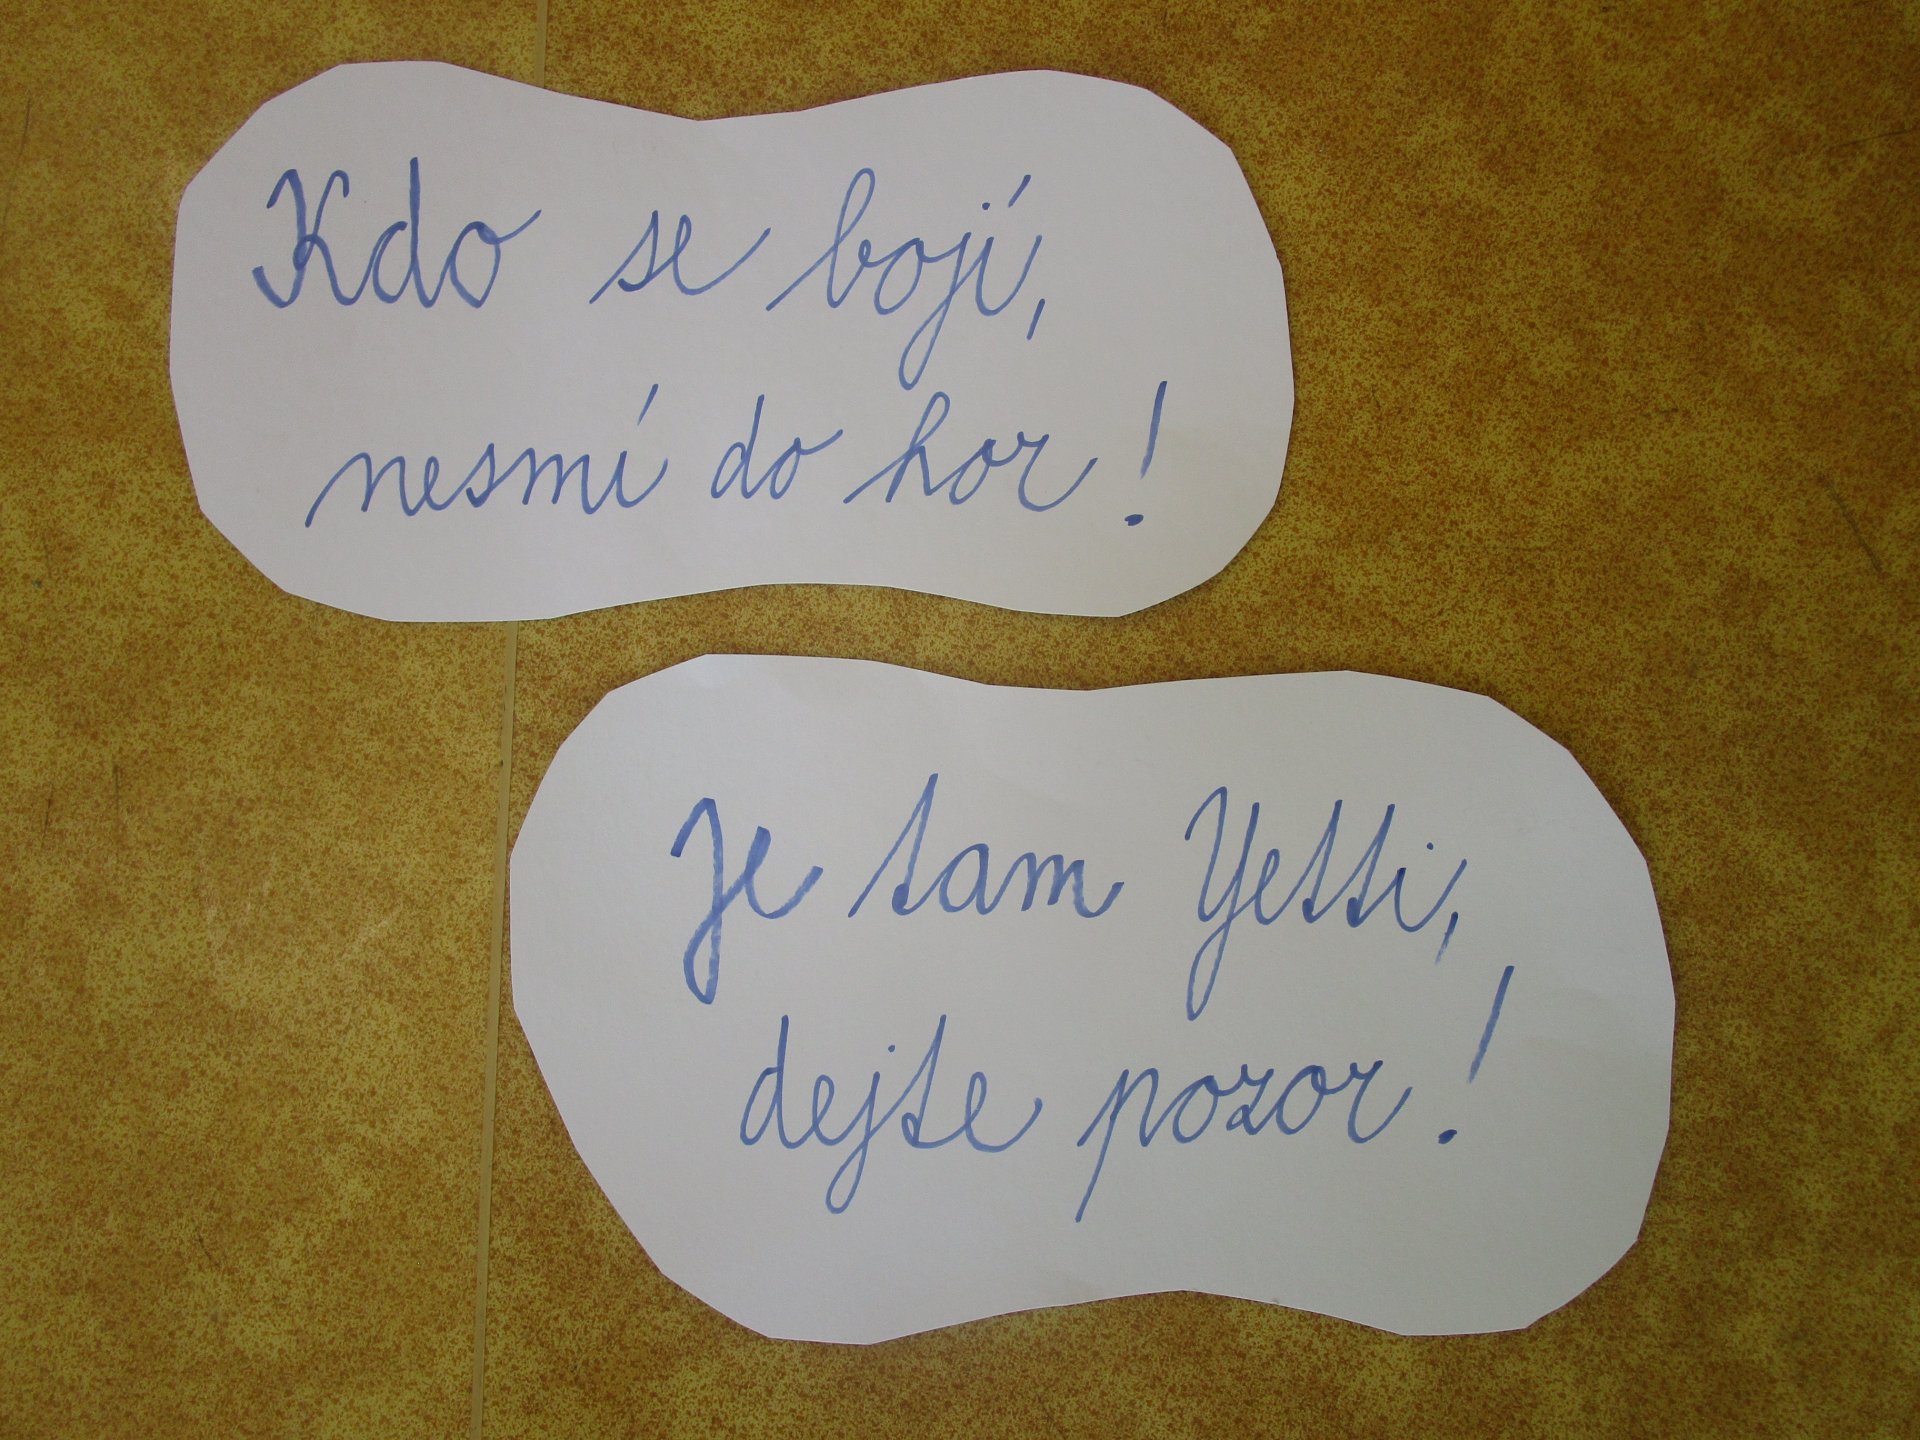 Kdo se bojí,
nesmí do hor!
Je tam Yetti,
dejte pozor!